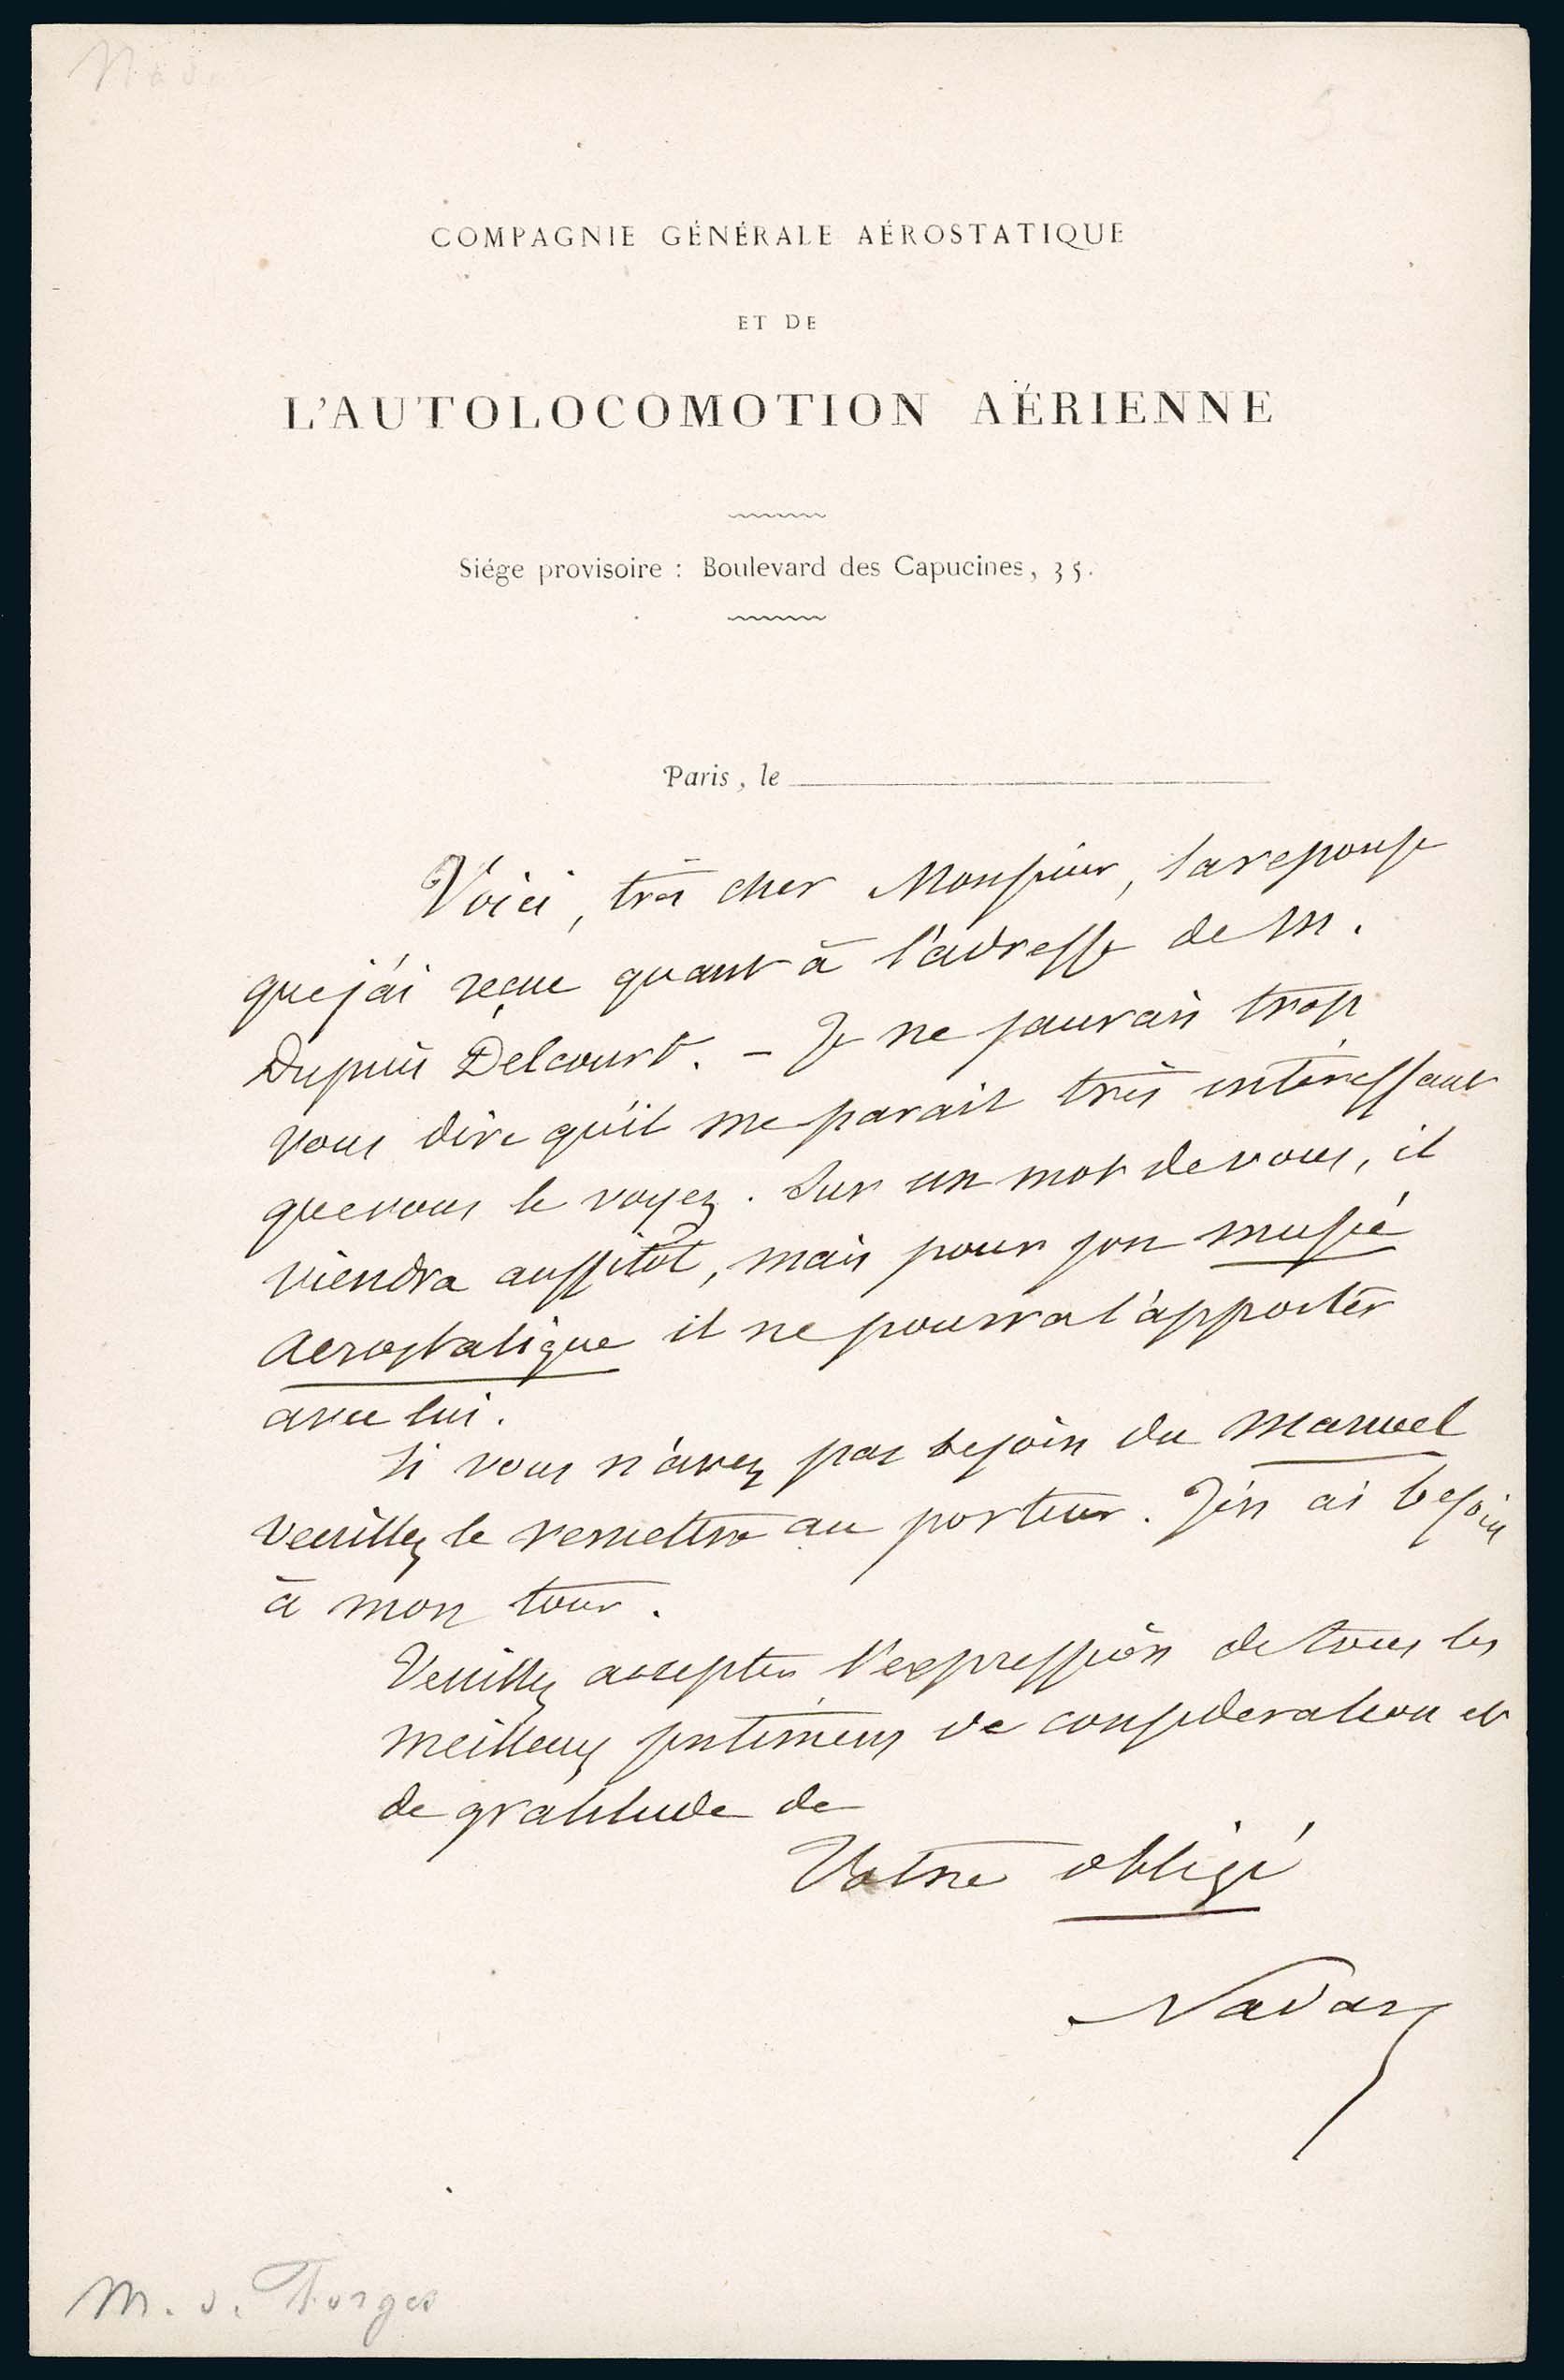 COMPAGNIE GÉNÉRALE AÉROSTATIQUE
ET DE
L'AUTOLOCOMOTION AÉRIENNE
Siége provisoire : Boulevard des Capucines, 35.
Paris, le
Voici, très cher Monsieur, la reponse
que j'ai reçue quant à l'adresse de M.
Dupuis Delcourt. – Je ne saurais trop
vous dire qu'il me parait très intéressant
que vous le voyez. Sur un mot de vous, il
viendra aussitôt, mais pour son musée
aerostatique il ne pourra l'apporter
avec lui.
Si vous n'avez pas besoin du Manuel
veuillez le remettre au porteur. J'en ai besoin
à mon tour.
Veuillez accepter l'expression de tous les
meilleurs sentimens de consideration et
de gratitude de
Votre obligé
Nadar
M. d. Forges